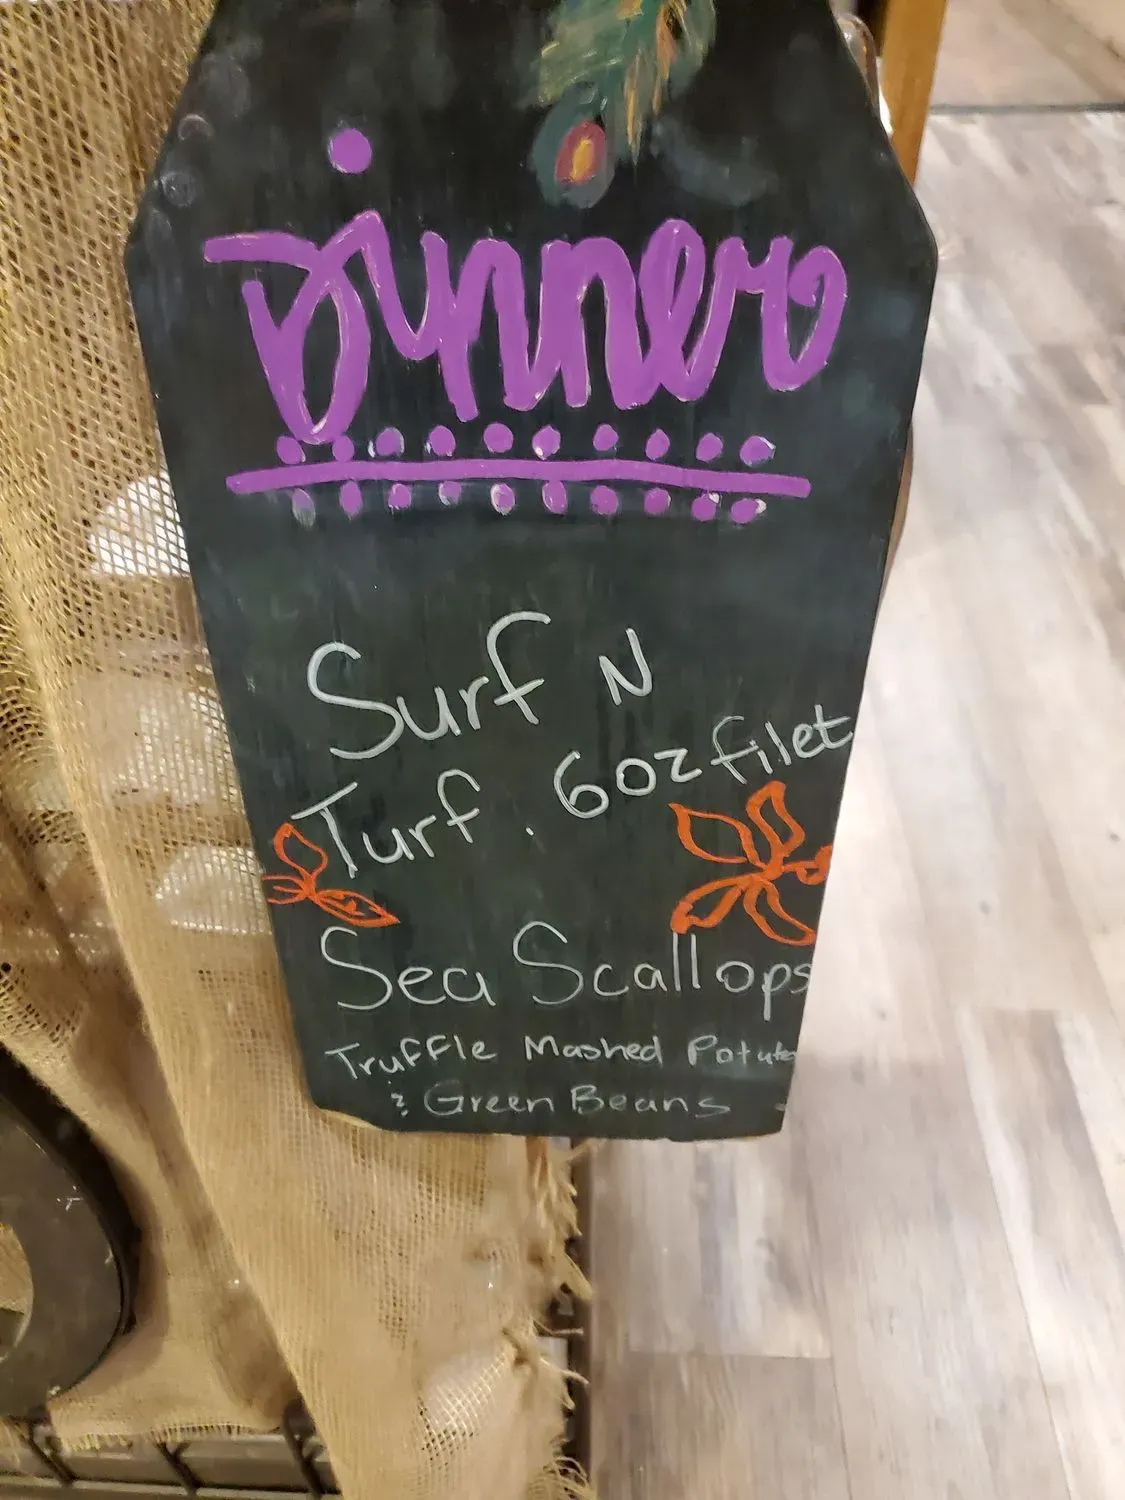 Dinner
Surf N
Turf . 6oz filet
Sea Scallops
Truffle Mashed Potatoes
& Green Beans